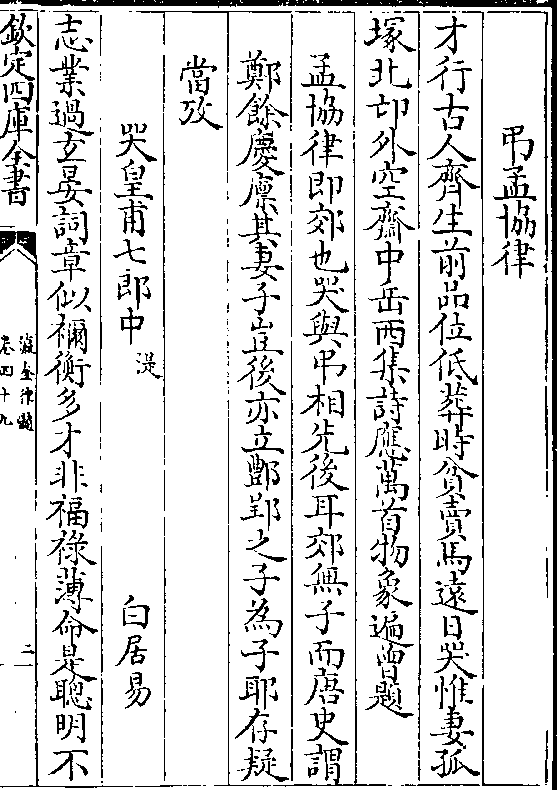 弔孟協律
才行古人齊生前品位低葬時貧賣馬逺日哭惟妻孤
塚北邙外空齋中岳西集詩應萬首物象遍曾題
孟協律即郊也哭與弔相先後耳郊無子而唐史謂
鄭餘慶廪其妻子豈後亦立酆郢之子為子耶存疑
當攷
哭皇甫七郎中 湜 白居易
志業過玄晏詞章似禰衡多才非福祿薄命是聰明不
欽定四庫全書
瀛奎律髓
卷四十九
二